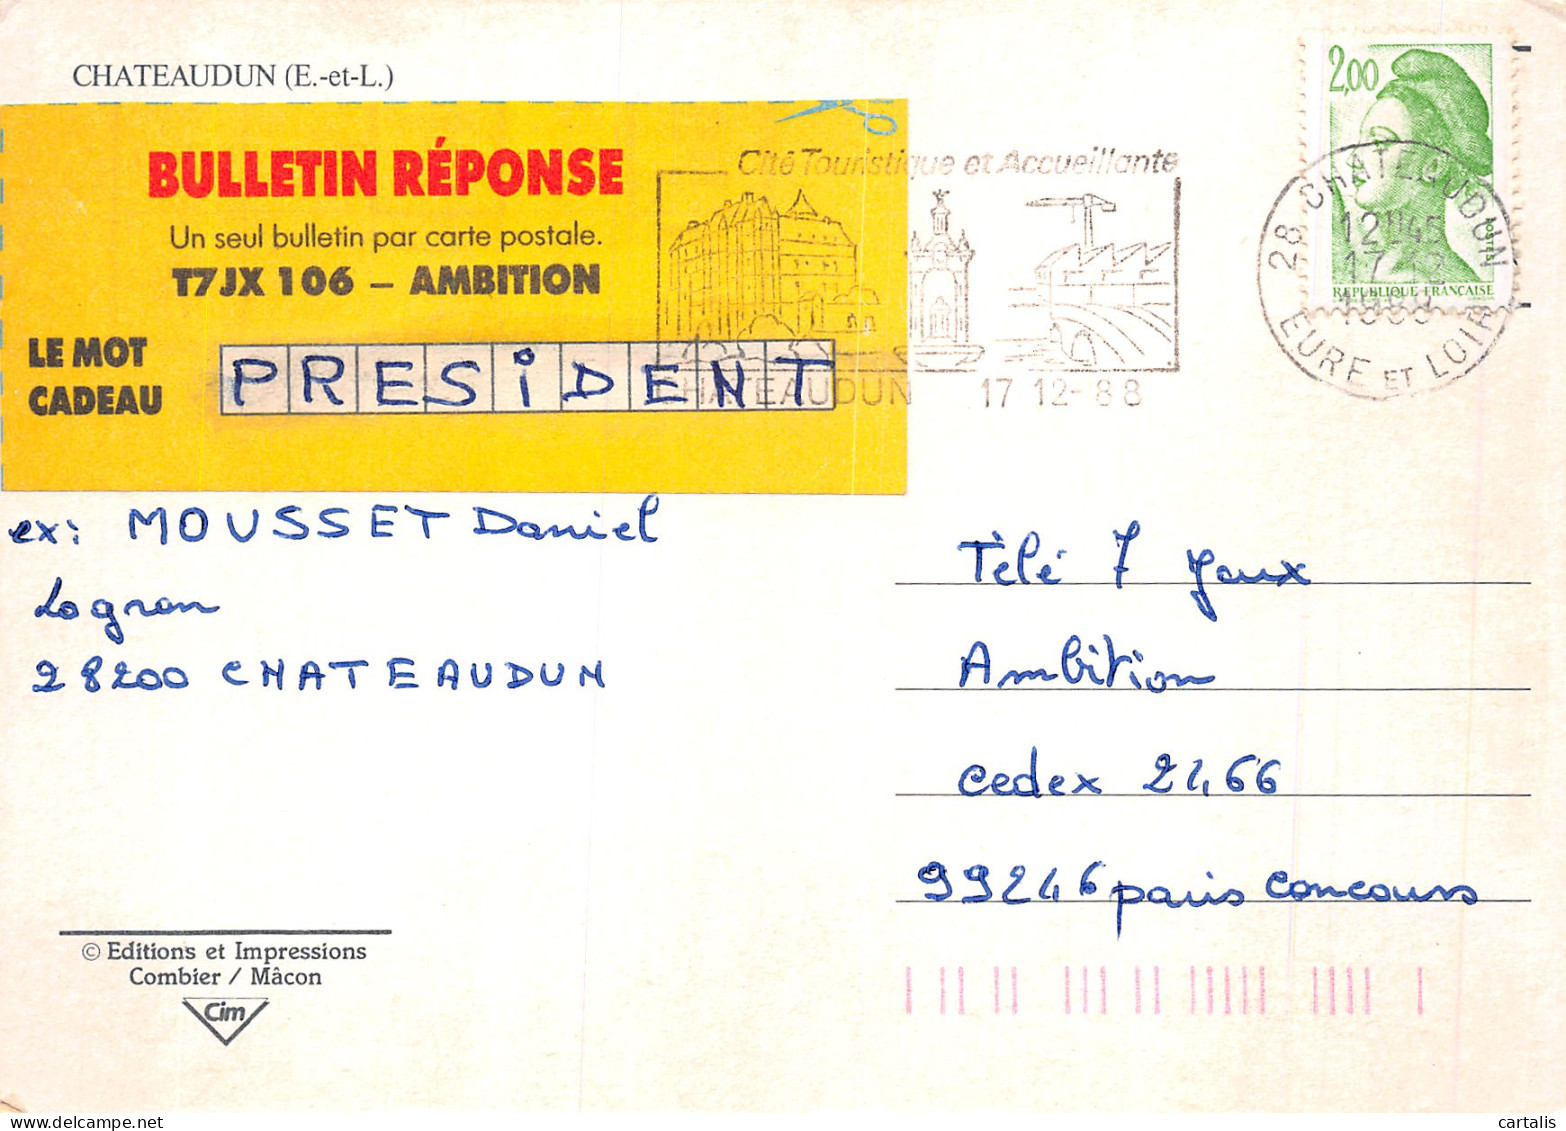 CHATEAUDUN (E.-et-L.)
BULLETIN RÉPONSE
Un seul bulletin par carte postale.
T7JX 106 – AMBITION
LE MOT
CADEAU
PRESIDENT
Cité Touristique et Accueillante
CHATEAUDUN 17 12-88
2,00
POSTES
REPUBLIQUE FRANÇAISE
28 CHATEAUDUN
12H45
17-12
1988
EURE ET LOIR
ex: MOUSSET Daniel
Logron
28200 CHATEAUDUN
Télé 7 Jeux
Ambition
cedex 2466
99246 paris concours
© Editions et Impressions
Combier / Mâcon
Cim
cartalis